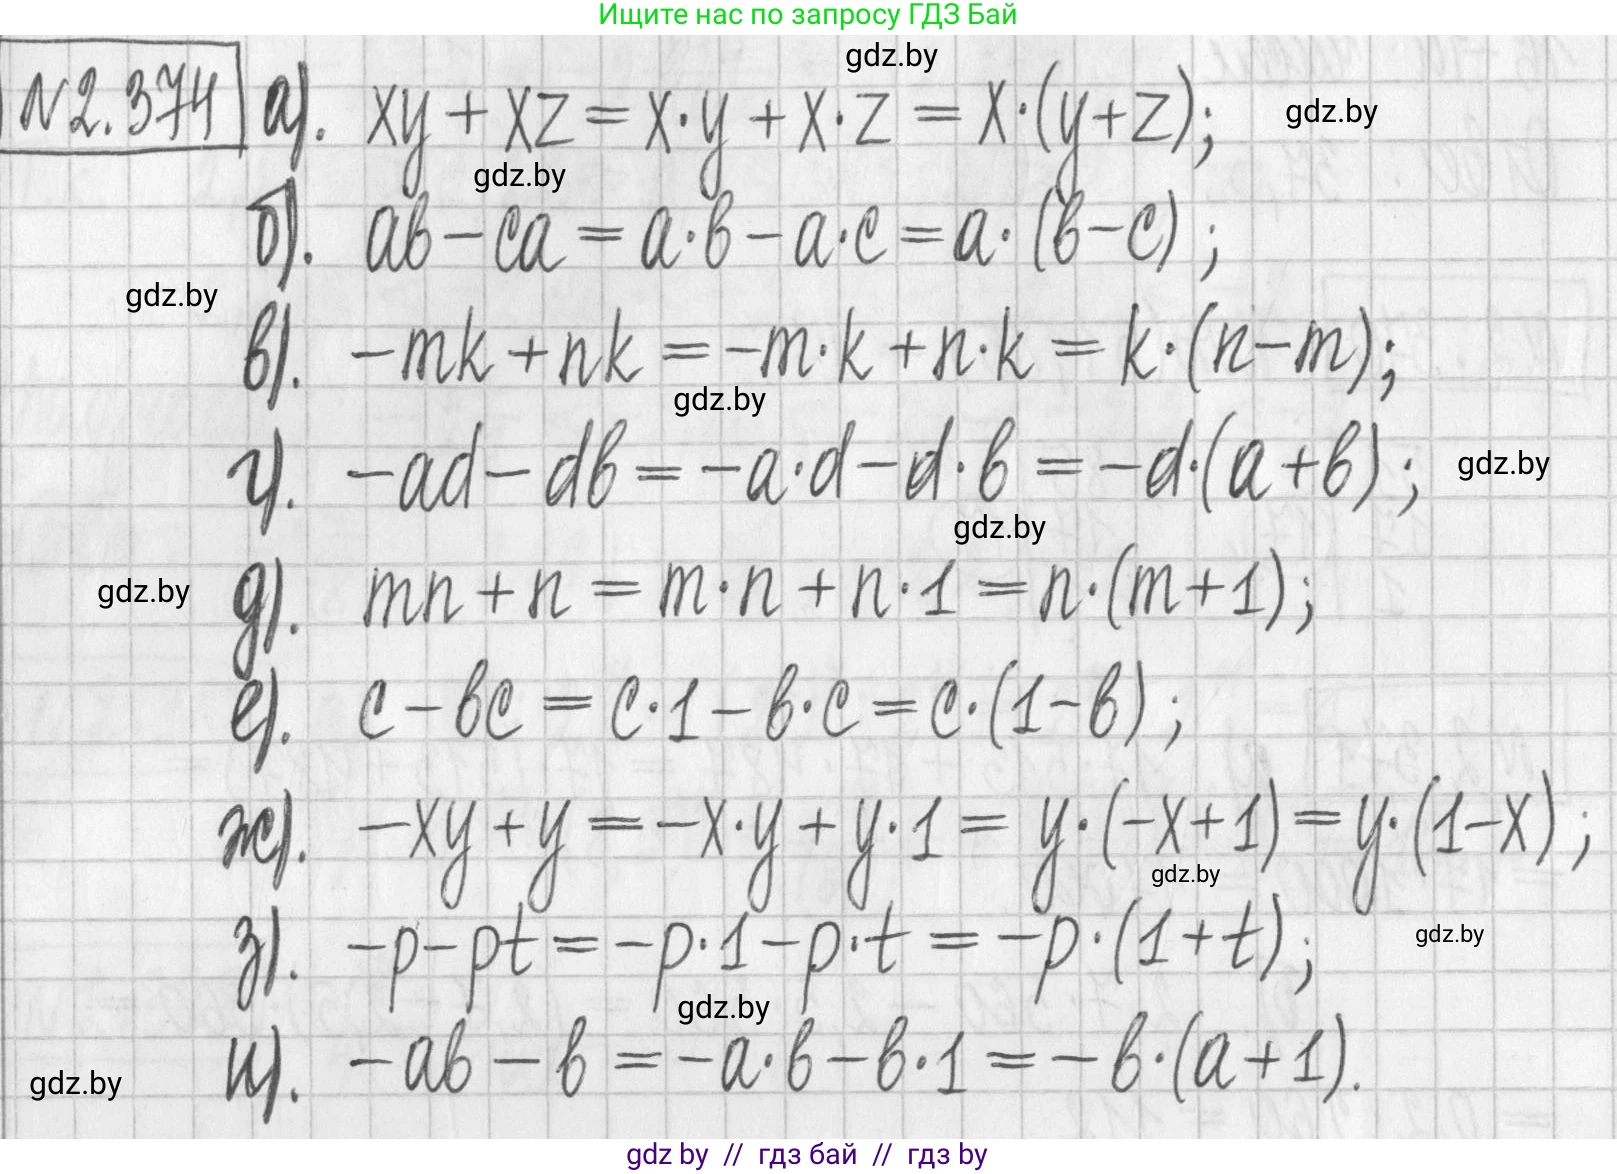 Ищите нас по запросу ГДЗ Бай
gdz.by
N2.374 а). xy + xz = x·y + x·z = x·(y+z);
gdz.by
gdz.by
б). ab − ca = a·b − a·c = a·(b−c);
gdz.by
в). −mk + nk = −m·k + n·k = k·(n−m);
gdz.by
г). −ad − db = −a·d − d·b = −d·(a+b);
gdz.by
gdz.by
gdz.by
д). mn + n = m·n + n·1 = n·(m+1);
е). c − bc = c·1 − b·c = c·(1−b);
ж). −xy + y = −x·y + y·1 = y·(−x+1) = y·(1−x);
gdz.by
з). −p − pt = −p·1 − p·t = −p·(1+t);
gdz.by
gdz.by
и). −ab − b = −a·b − b·1 = −b·(a+1).
gdz.by
gdz by // гдз бай // гдз by